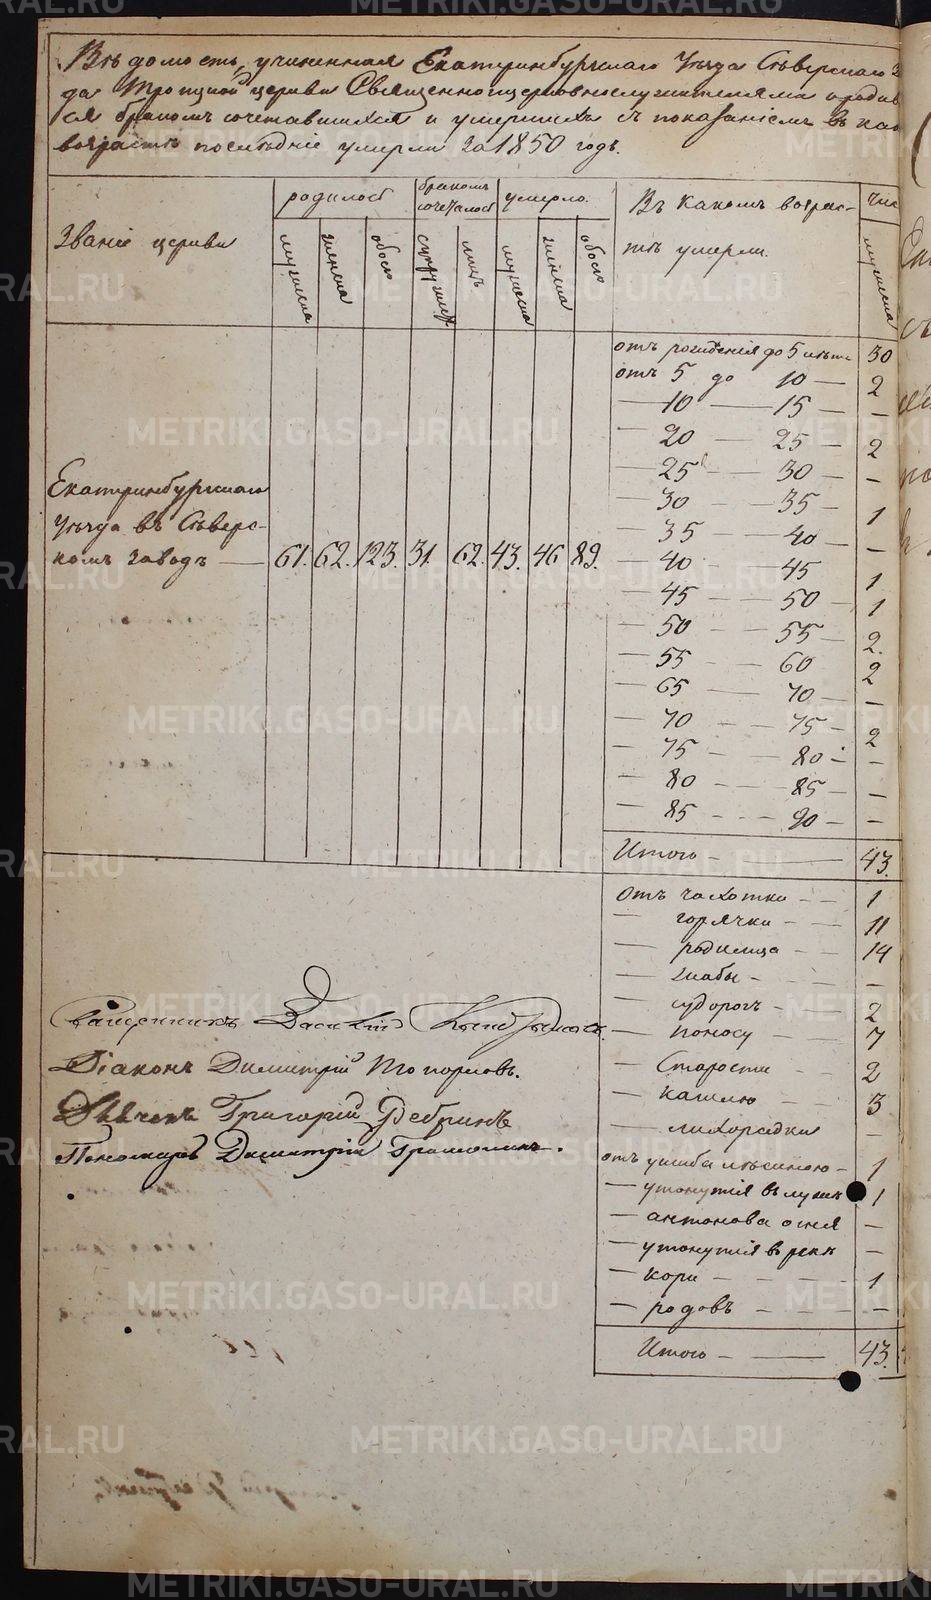 Вѣдомость, учиненная Екатеринбургскаго Уѣзда Сѣверскаго За
да Троицкой церкви Священноцерковнослужителями о родив
ся бракомъ сочетавшихся и умершихъ съ показаніемъ въ как
возрастѣ послѣдніе умерли за 1850 годъ.
Званіе церкви
родилось
бракомъ сочеталось
умерло
Въ какомъ возрас-
тѣ умерли.
Чис
мужеска
женска
обоего
супружествъ
лицъ
мужеска
женска
обоего
мужеска
Екатеринбургскаго
Уѣзда въ Сѣверс-
комъ заводѣ — 61. 62. 123. 31. 62. 43. 46 89.
отъ рожденія до 5 лѣтъ 30
отъ 5 до 10 — 2
— 10 — 15 — –
— 20 — 25 — 2
— 25 — 30 — –
— 30 — 35 — 1
— 35 — 40 — –
— 40 — 45 1
— 45 — 50 — 1
— 50 — 55 — 2.
— 55 — 60 2
— 65 — 70 — –
— 70 — 75 — 2
— 75 — 80 — –
— 80 — 85 — –
— 85 — 90 — –
Итого — 43.
Отъ чахотки — 1
— горячки — 11
— родимца — 14
— жабы — –
— судорогъ — 2
— поносу — 7
— Старости — 2
— кашлю — 3
— лихорадки –
отъ ушиба лѣсиною — 1
— утонутія въ лужѣ 1
— антонова огня –
— утонутія в рекѣ –
— кори — 1
— родовъ — –
Итого — 43.
Священникъ Василій
Діаконъ Димитрій Топорковъ.
Дьячекъ Григорій Дебринъ
Пономарь Димитрій
METRIKI.GASO-URAL.RU